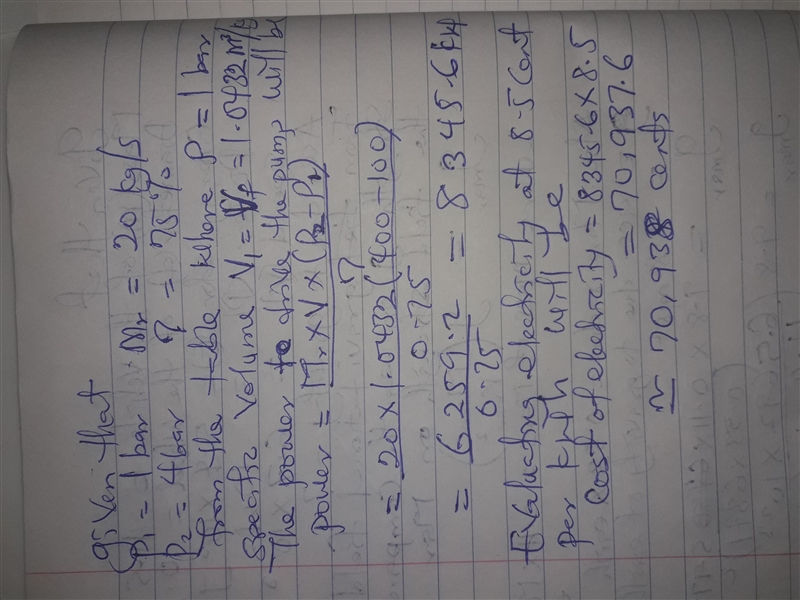 given that
P₁ = 1 bar Mr = 20 kg/s
P₂ = 4 bar η = 75%
from the table where P = 1 bar
Specific volume V₁ = Vf = 1.0432 m³/kg
The power to drive the pump will be
power = Mr × V × (P₂ - P₁) / η
= 20 × 1.0432 (400 - 100) / 0.75
= 6259.2 / 0.75 = 8345.6 kW
Evaluating electricity at 8.5 Cent
per kWh will be
Cost of electricity = 8345.6 × 8.5
= 70,937.6
≃ 70,938 cents